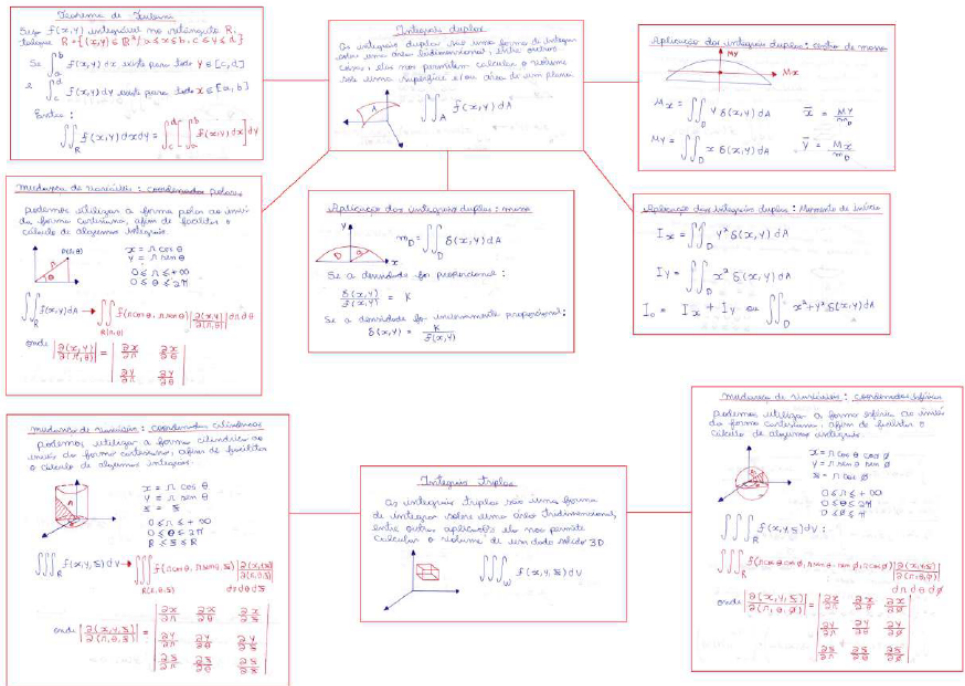 Teorema de Fubini
Seja f(x,y) integrável no retângulo R,
R = {(x,y) ∈ R² / a ≤ x ≤ b, c ≤ y ≤ d}
Se ∫_a^b f(x,y) dx existe para todo y ∈ [c,d]
e ∫_c^d f(x,y) dy existe para todo x ∈ [a,b]
Então:
∬_R f(x,y) dx dy = ∫_c^d [∫_a^b f(x,y) dx] dy
Integrais duplas
As integrais duplas são uma forma de integrar
sobre uma área bidimensional, entre outras
coisas, elas nos permitem calcular o volume
sob uma superfície e/ou área de um plano.
A
∬_A f(x,y) dA
Aplicação das integrais duplas: centro de massa
My
Mx
Mx = ∬_D y δ(x,y) dA
x̄ = My/m_D
My = ∬_D x δ(x,y) dA
ȳ = Mx/m_D
mudança de variáveis: coordenadas polares
podemos utilizar a forma polar ao invés
da forma cartesiana, afim de facilitar o
cálculo de algumas integrais.
P(r,θ)
r
θ
x = r cos θ
y = r sen θ
0 ≤ r ≤ +∞
0 ≤ θ ≤ 2π
∬_R f(x,y) dA → ∬_R(r,θ) f(r cos θ, r sen θ) |∂(x,y)/∂(r,θ)| dr dθ
onde |∂(x,y)/∂(r,θ)| = | ∂x/∂r ∂x/∂θ |
| ∂y/∂r ∂y/∂θ |
Aplicação das integrais duplas: massa
y
D
x
m_D = ∬_D δ(x,y) dA
Se a densidade for proporcional:
δ(x,y)/f(x,y) = K
Se a densidade for inversamente proporcional:
δ(x,y) = K/f(x,y)
Aplicação das integrais duplas: Momento de Inércia
Ix = ∬_D y² δ(x,y) dA
Iy = ∬_D x² δ(x,y) dA
I₀ = Ix + Iy ou ∬_D x²+y² δ(x,y) dA
mudança de variáveis: coordenadas cilíndricas
podemos utilizar a forma cilíndrica ao
invés da forma cartesiana, afim de facilitar
o cálculo de algumas integrais.
x = r cos θ
y = r sen θ
z = z
0 ≤ r ≤ +∞
0 ≤ θ ≤ 2π
R ≤ z ≤ R
∭_R f(x,y,z) dV → ∭_R(r,θ,z) f(r cos θ, r sen θ, z) |∂(x,y,z)/∂(r,θ,z)|
dr dθ dz
onde |∂(x,y,z)/∂(r,θ,z)| = | ∂x/∂r ∂x/∂θ ∂x/∂z |
| ∂y/∂r ∂y/∂θ ∂y/∂z |
| ∂z/∂r ∂z/∂θ ∂z/∂z |
Integrais triplas
As integrais triplas são uma forma
de integrar sobre uma área tridimensional,
entre outras aplicações ela nos permite
calcular o volume de um dado sólido 3D
∭_W f(x,y,z) dV
mudança de variáveis: coordenadas esféricas
podemos utilizar a forma esférica ao invés
da forma cartesiana, afim de facilitar o
cálculo de algumas integrais.
x = r cos θ cos ø
y = r sen θ sen ø
z = r cos ø
0 ≤ r ≤ +∞
0 ≤ θ ≤ 2π
0 ≤ ø ≤ π
∭_R f(x,y,z) dV :
∭_R f(r cos θ cos ø, r sen θ · sen ø, r cos ø) |∂(x,y,z)/∂(r,θ,ø)|
dr dθ dø
onde |∂(x,y,z)/∂(r,θ,ø)| = | ∂x/∂r ∂x/∂θ ∂x/∂ø |
| ∂y/∂r ∂y/∂θ ∂y/∂ø |
| ∂z/∂r ∂z/∂θ ∂z/∂ø |